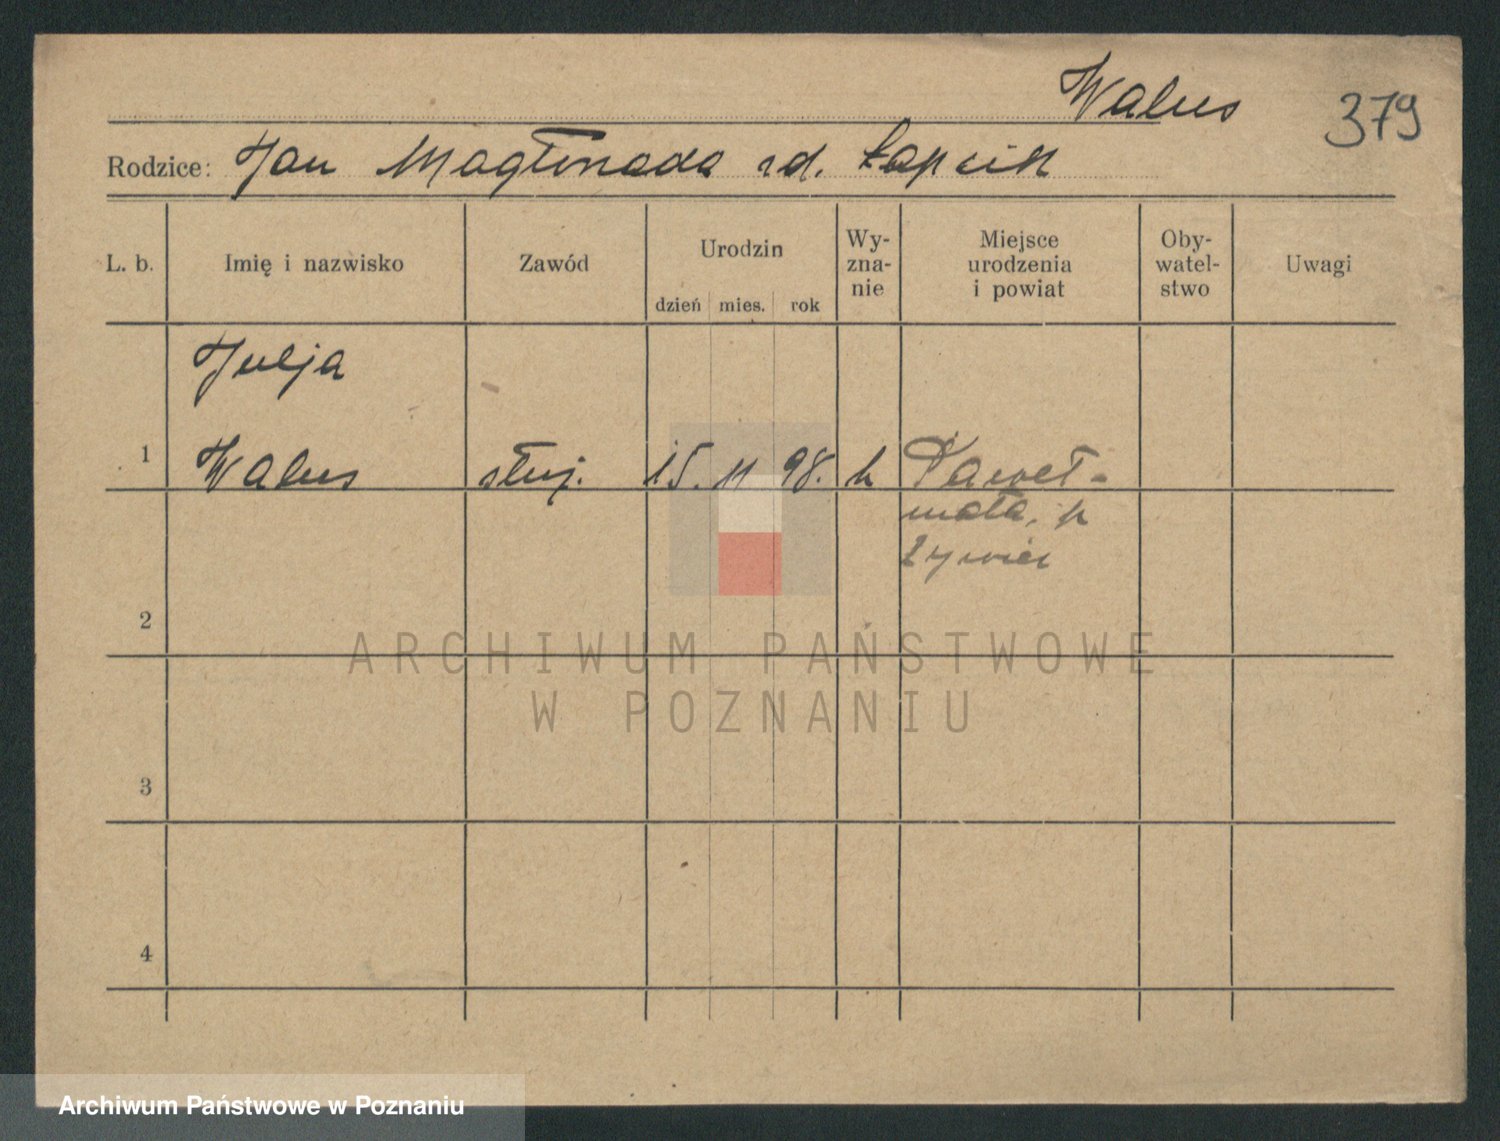 Walus
379
Rodzice: Jan Magłmada zd. Łapcik
L. b. Imię i nazwisko Zawód Urodzin dzień mies. rok Wy-zna-nie Miejsce urodzenia i powiat Oby-watel-stwo Uwagi
Julja
1 Walus służ. 15. 11 98. k Paweł-
mała, p
Żywiec
2
ARCHIWUM PAŃSTWOWE
W POZNANIU
3
4
Archiwum Państwowe w Poznaniu